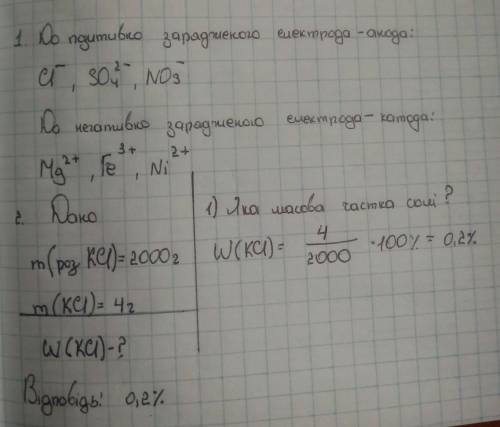 1. До пдитивно зарадженого електрода-анода:
Cl⁻, SO₄²⁻, NO₃⁻
До негативно зарадженого електрода-катода:
Mg²⁺, Fe³⁺, Ni²⁺
2. Дано
m(роз KCl)=2000г
m(KCl)=4г
W(KCl)-?
1) Яка масова частка солі?
W(KCl)= 4/2000 ·100%=0,2%
Відповідь: 0,2%.